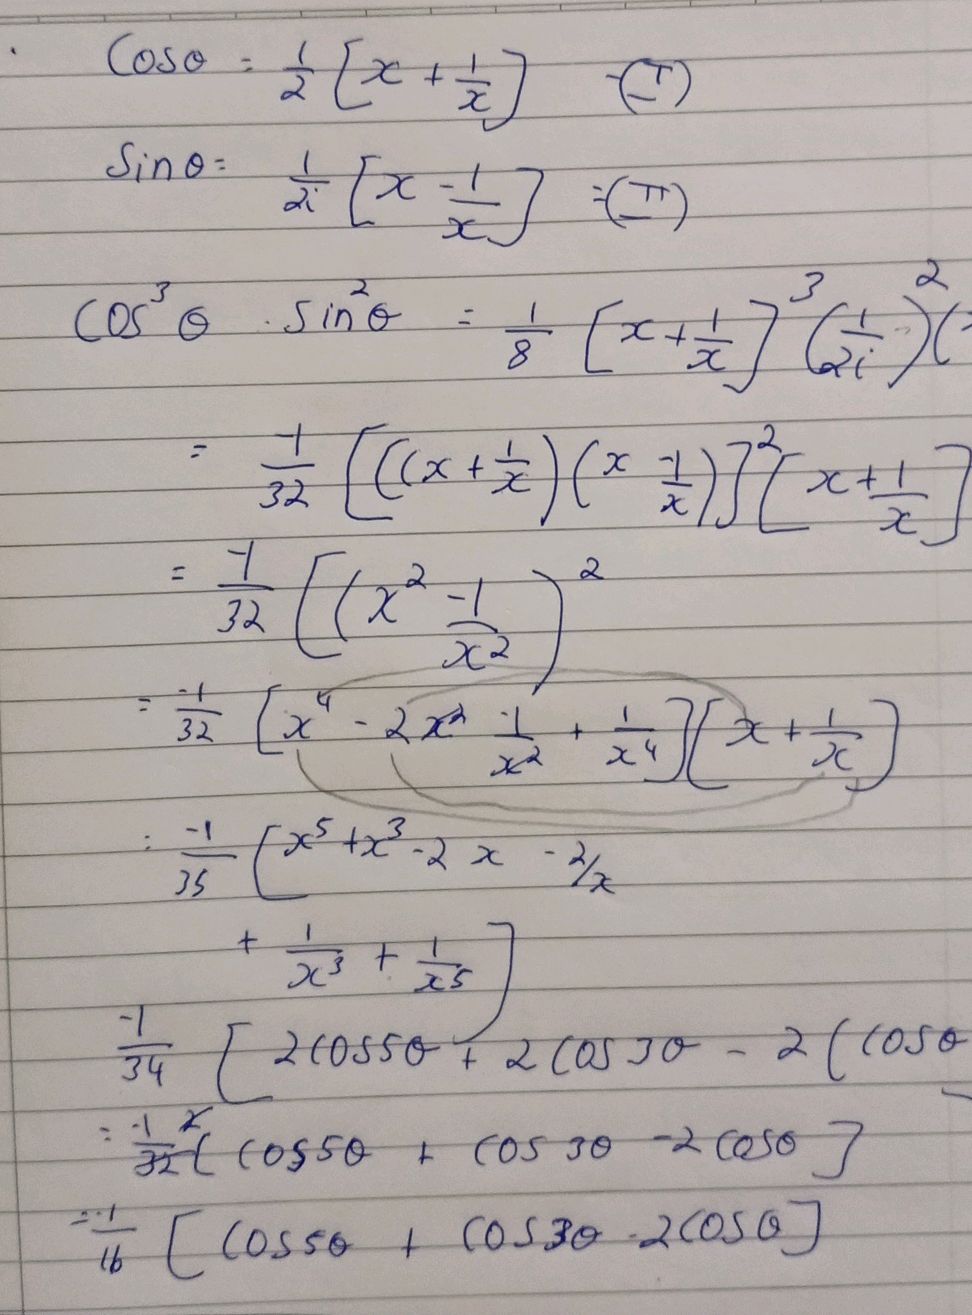 Cosθ = 1/2 [x + 1/x] -(I)
Sinθ = 1/2i [x - 1/x] =(II)
Cos³θ . Sin²θ = 1/8 [x + 1/x]³ (1/2i)² (
= -1/32 [((x + 1/x)(x - 1/x)]² [x + 1/x]
= -1/32 [(x² - 1/x²)²
= -1/32 [x⁴ - 2x² 1/x² + 1/x⁴][x + 1/x]
: -1/35 [x⁵ + x³ - 2x - 2/x
+ 1/x³ + 1/x⁵]
-1/34 [2cos5θ + 2cos3θ - 2(cosθ
= -1/32 2[cos5θ + cos3θ - 2cosθ]
= -1/16 [cos5θ + cos3θ - 2cosθ]